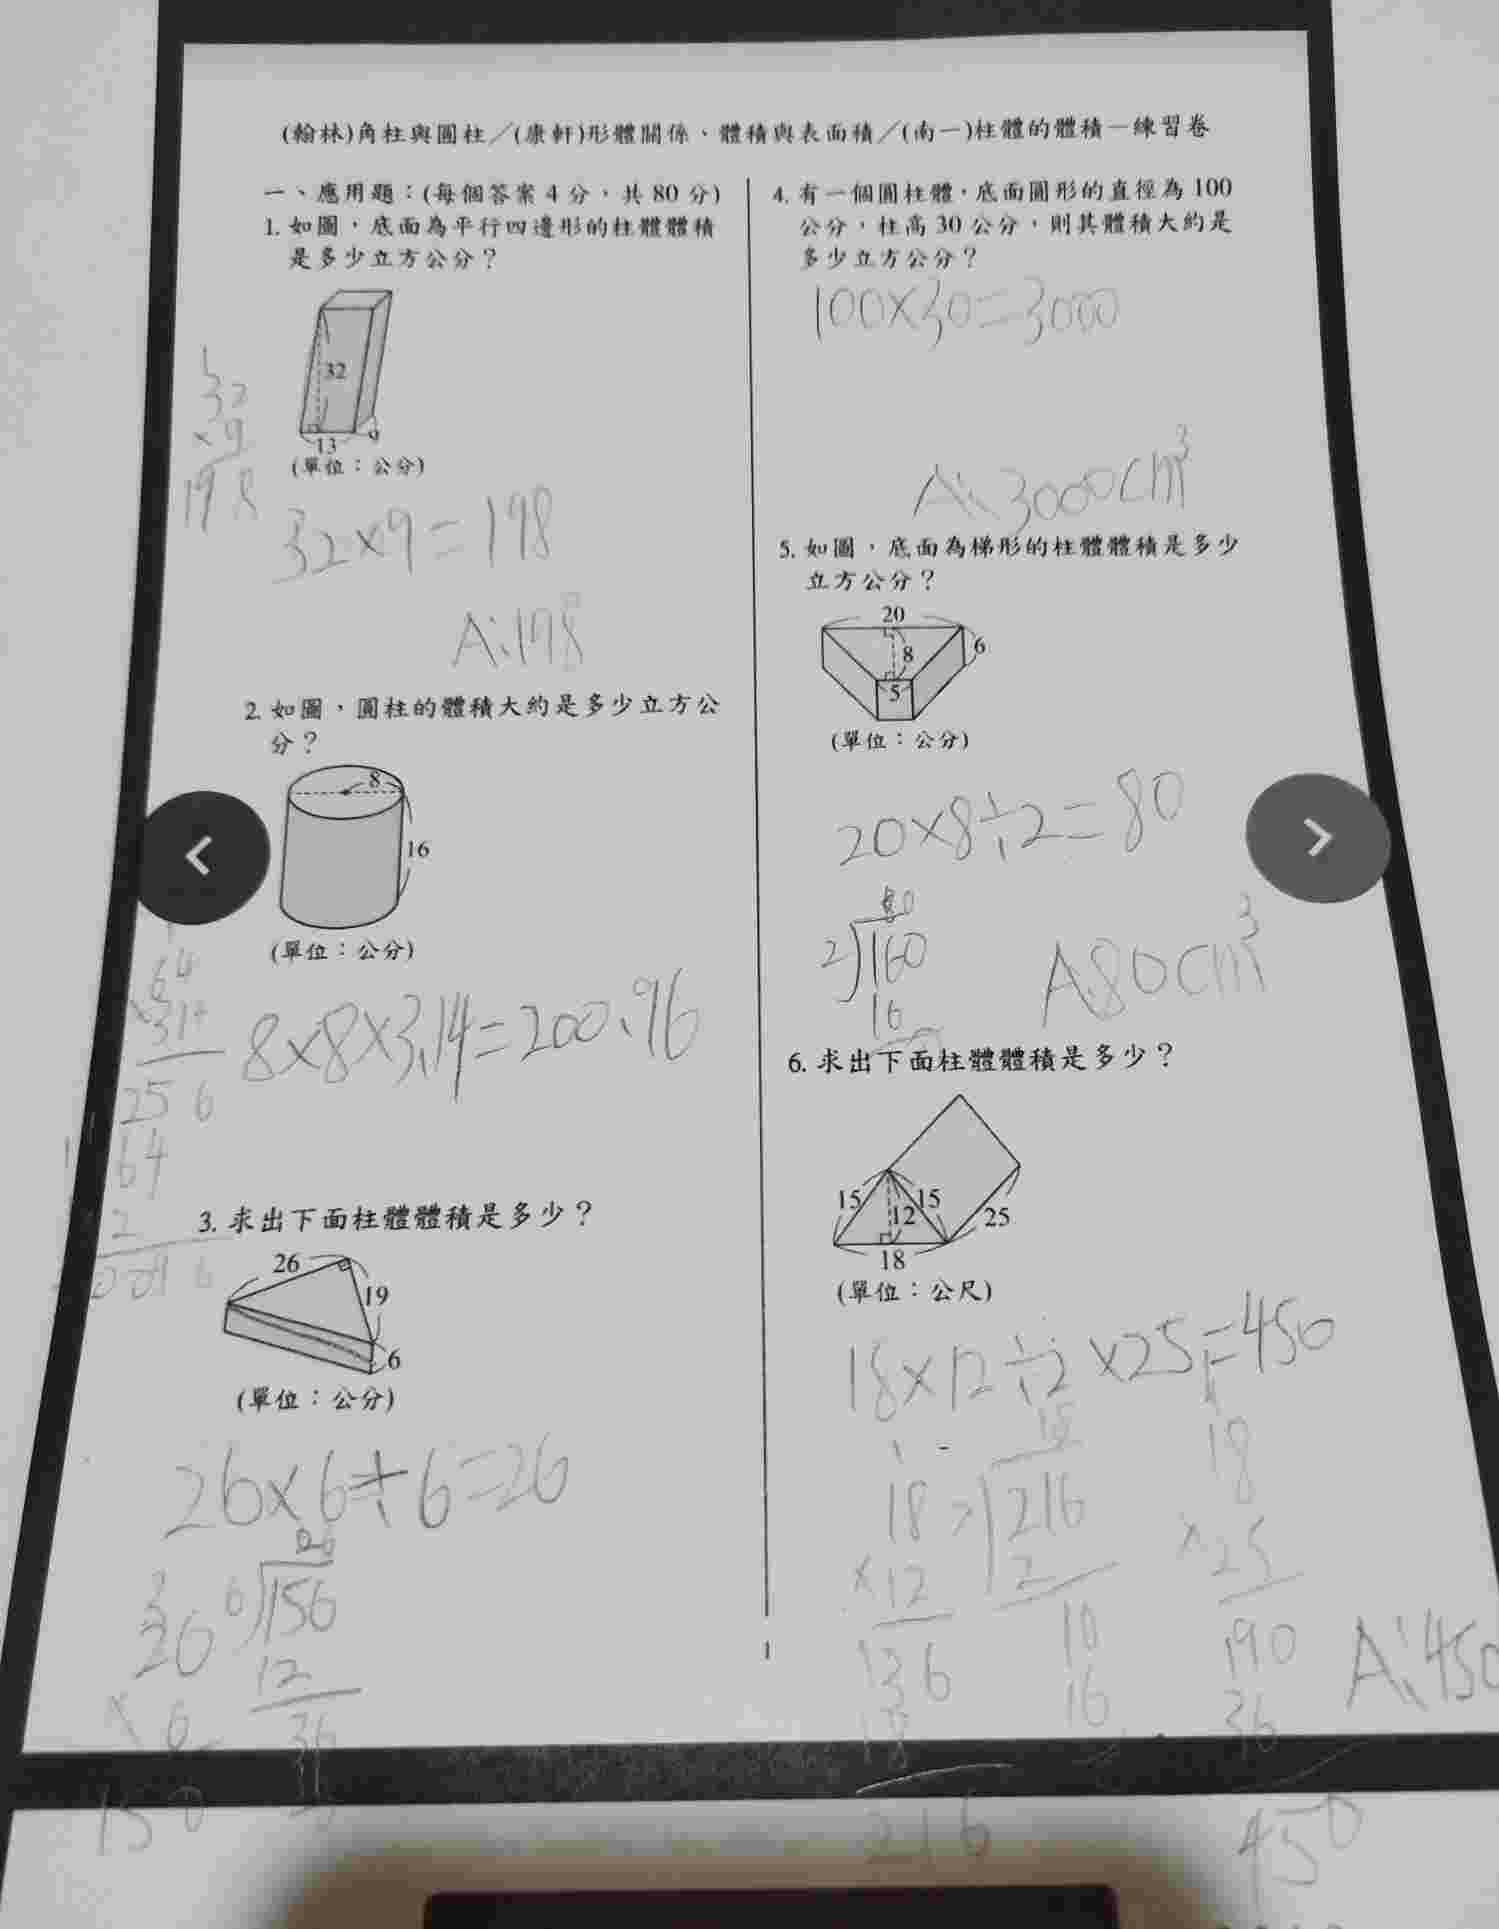 (翰林)角柱與圓柱／(康軒)形體關係、體積與表面積／(南一)柱體的體積－練習卷
一、應用題：(每個答案 4 分，共 80 分)
1. 如圖，底面為平行四邊形的柱體體積
是多少立方公分？
32
13
9
(單位：公分)
32
×9
198
32×9=198
A:198
2. 如圖，圓柱的體積大約是多少立方公
分？
8
16
(單位：公分)
8×8×3.14=200.96
64
×314
256
64
2
3. 求出下面柱體體積是多少？
26
19
6
(單位：公分)
26×6÷6=26
26
6
156
12
36
36
26
×6
4. 有一個圓柱體，底面圓形的直徑為 100
公分，柱高 30 公分，則其體積大約是
多少立方公分？
100×30=3000
A:3000cm³
5. 如圖，底面為梯形的柱體體積是多少
立方公分？
20
8
6
5
(單位：公分)
20×8÷2=80
80
2
160
16
A:80cm³
6. 求出下面柱體體積是多少？
15
15
12
25
18
(單位：公尺)
18×12÷2×25=450
18
×12
136
18
216
216
2
10
16
18
×25
190
36
450
A:450
1